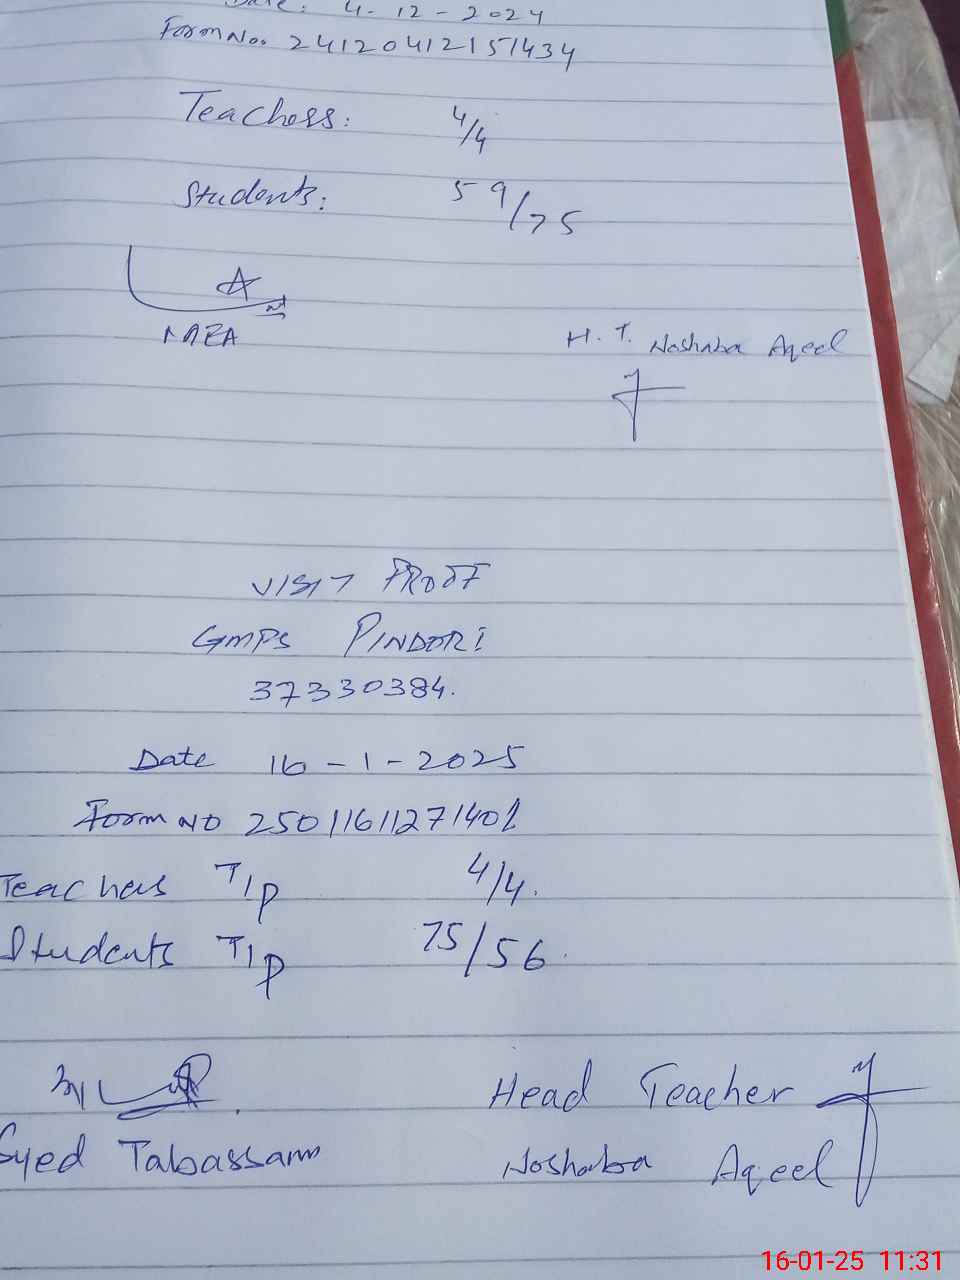 Date: 4-12-2024
Form No. 24120412151434
Teachers: 4/4
Students: 59/75
MEA
H.T. Noshaba Aqeel
VISIT PROOF
GMPS PINDORI
37330384.
Date 16-1-2025
Form NO 25011611271401
Teachers T/P 4/4.
Students T/P 75/56.
Head Teacher
Syed Tabassam
Noshaba Aqeel
16-01-25 11:31